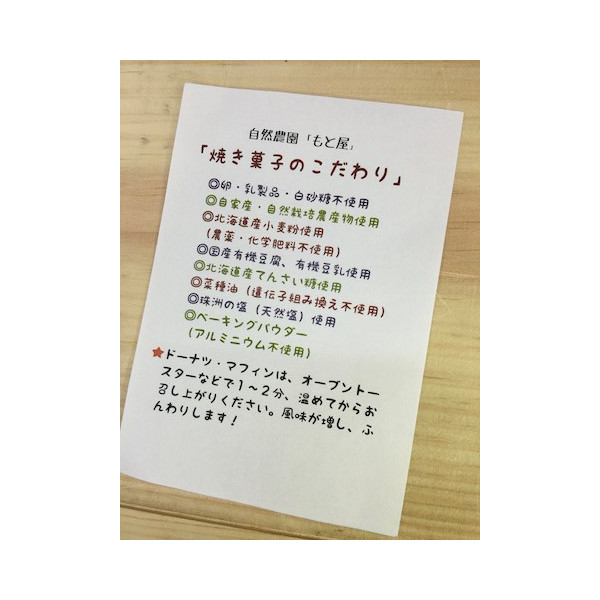 自然農園「もと屋」
「焼き菓子のこだわり」
◎卵・乳製品・白砂糖不使用
◎自家産・自然栽培農産物使用
◎北海道産小麦粉使用
(農薬・化学肥料不使用)
◎国産有機豆腐、有機豆乳使用
◎北海道産てんさい糖使用
◎菜種油(遺伝子組み換え不使用)
◎珠洲の塩(天然塩)使用
◎ベーキングパウダー
(アルミニウム不使用)
★ドーナツ・マフィンは、オーブントー
スターなどで1~2分、温めてからお
召し上がりください。風味が増し、ふ
んわりします!